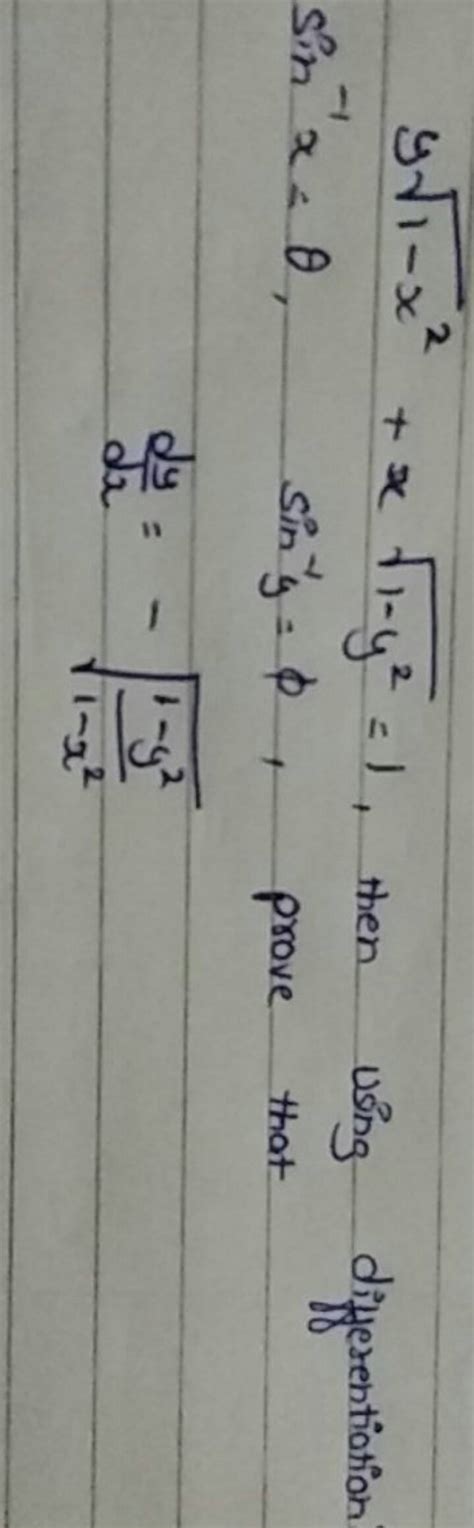 y√(1-x²) + x√(1-y²) = 1, then using differentiation
sin⁻¹x = θ, sin⁻¹y = ϕ, prove that
dy/dx = - √((1-y²)/(1-x²))